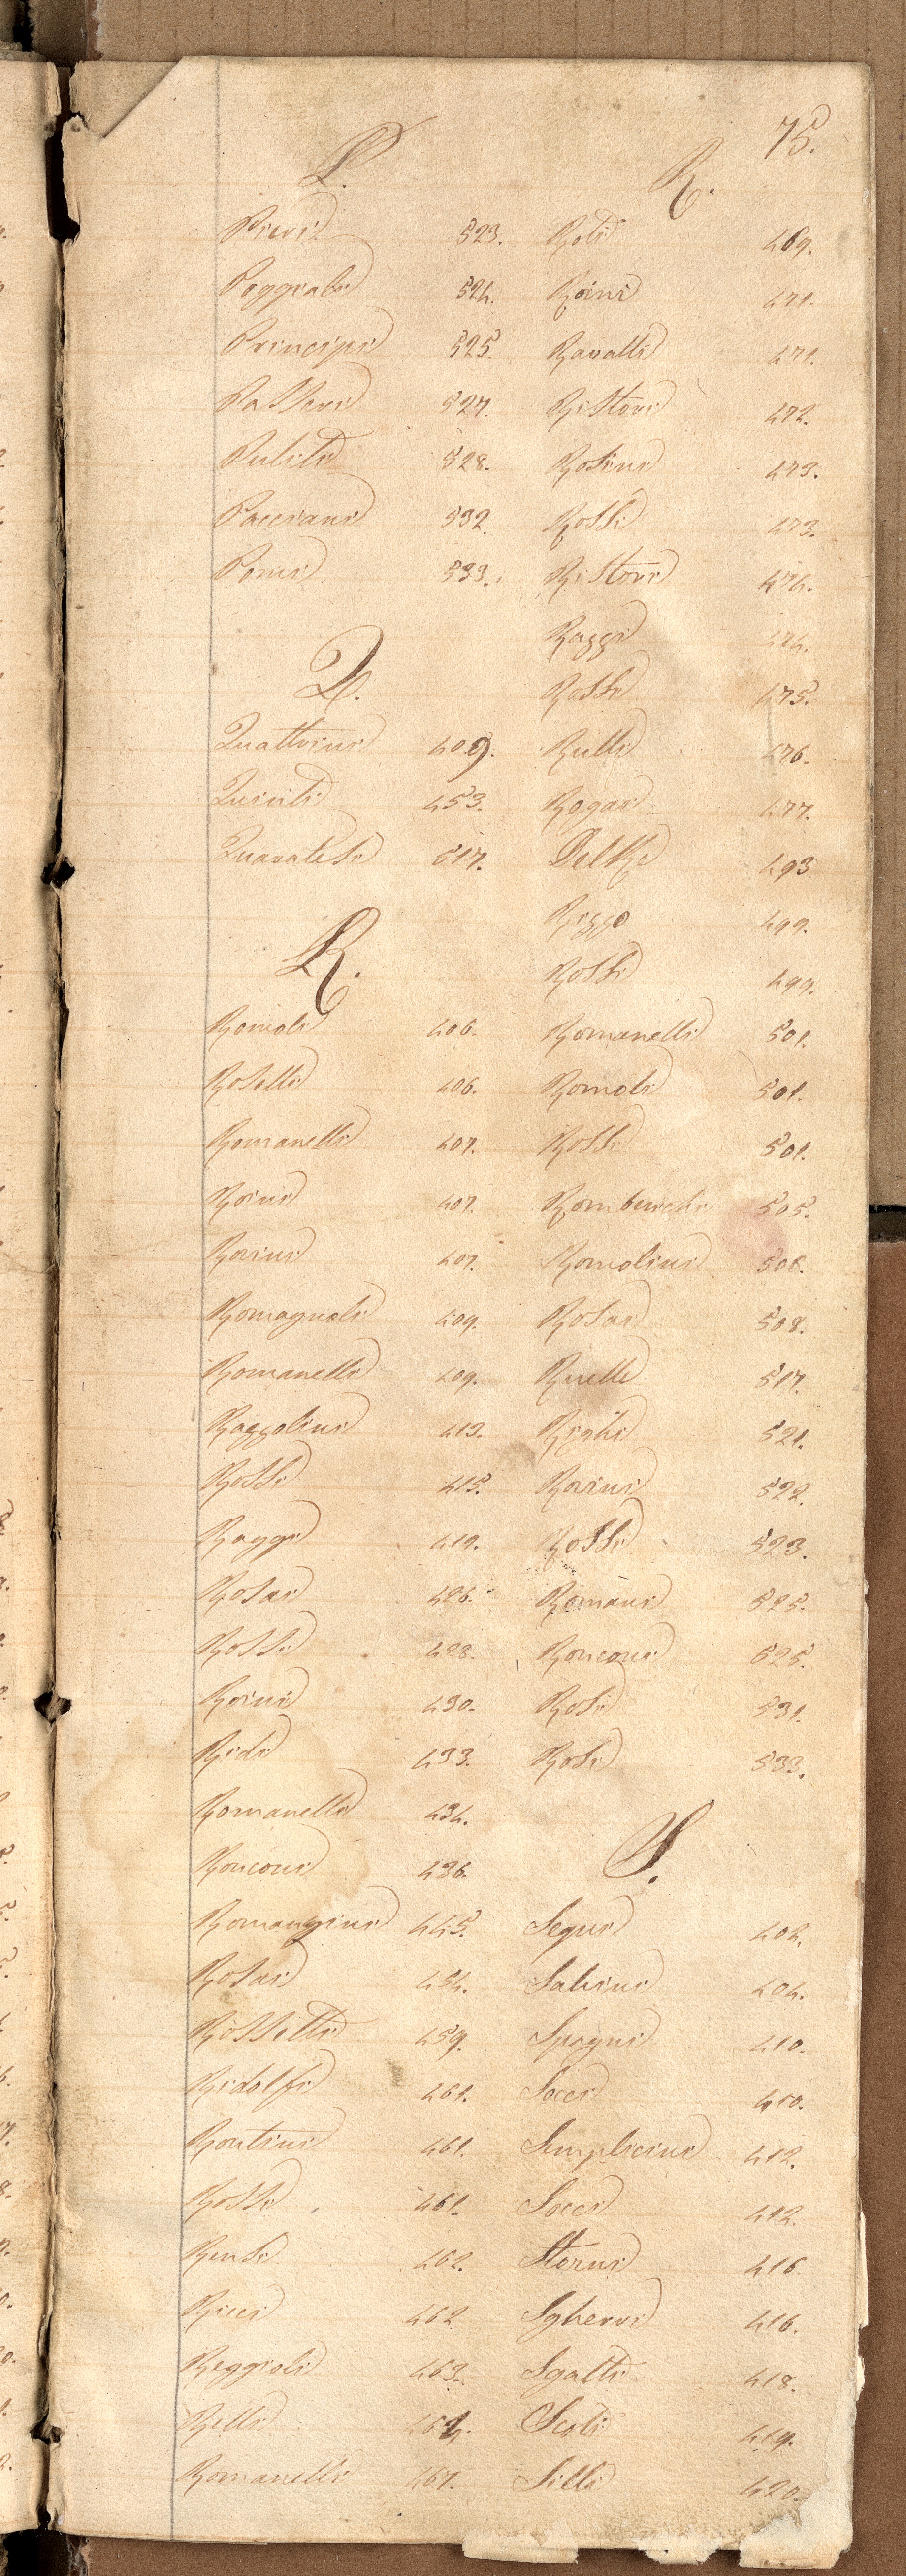 75.
P.
Pieri 523.
Poggiali 524.
Principi 525.
Passeri 527.
Puliti 528.
Pacciani 532.
Pomi 533.
Q.
Quattrini 409.
Quinti 453.
Quaratesi 517.
R.
Romoli 406.
Roselli 406.
Romanelli 407.
Roini 407.
Rovini 407.
Romagnoli 409.
Romanelli 409.
Razzolini 413.
Rossi 415.
Raggi 419.
Rosai 426.
Rossi 428.
Roini 430.
Ridi 433.
Romanelli 434.
Ronconi 436.
Romanzini 445.
Rosai 454.
Rossetti 459.
Ridolfi 461.
Rontini 461.
Rossi 461.
Rensi 462.
Ricci 462
Reggioli 463.
Relli 464.
Romanelli 467.
R.
Roti 469.
Roini 471.
Ravalli 471.
Ristori 472.
Rosini 473.
Rossi 473.
Ristori 474.
Raggi 474.
Rossi 475.
Rulli 476.
Rogai 477.
Del Re 493
Rizzo 499.
Rossi 499.
Romanelli 501.
Romoli 501.
Rossi 501.
505.
Romolini 506.
Rosai 508.
517.
Righi 521.
Rovini 522.
Rossi 523.
Romani 525.
Ronconi 525.
Rosi 531.
Rosi 533.
S.
Segni 402.
Salvini 404.
Spagni 410.
Socci 410.
Simplicini 412.
Socci 412.
Storni 416
Sgherri 416.
Sgatti 418.
Scoti 419.
Silli 420.